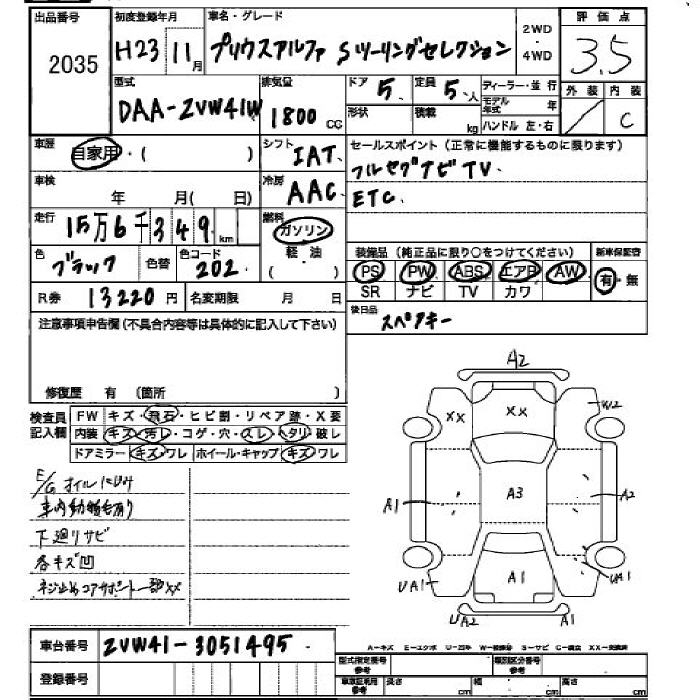 出品番号 2035
初度登録年月 H23 11月
車名・グレード プリウスアルファ Sツーリングセレクション
2WD・4WD
評価点 3.5
外装 内装 C
型式 DAA-ZVW41W
排気量 1800 CC
ドア 5
定員 5人
形状
積載 kg
ディーラー・並行
モデル年式 年
ハンドル 左・右
車歴 自家用・( )
シフト IAT
冷房 AAC
セールスポイント(正常に機能するものに限ります)
フルセグナビTV
ETC
車検 年 月( 日)
走行 15万6千349km
燃料 ガソリン・軽油 ( )
色 ブラック 色替 色コード 202
装備品(純正品に限り○をつけてください)
新車保証書 有・無
PS PW ABS エアB AW
SR ナビ TV カワ
R券 13220円 名変期限 月 日
後日品 スペアキー
注意事項申告欄(不具合内容等は具体的に記入して下さい)
修復歴 有 (箇所 )
検査員記入欄
FW キズ・飛石・ヒビ割・リペア跡・X要
内装 キズ・汚レ・コゲ・穴・スレ・ヘタリ・破レ
ドアミラー キズ・ワレ ホイール・キャップ キズ・ワレ
E/Gオイルにじみ
車内動物毛有り
下廻りサビ
各キズ凹
ネジ止めコアサポート一部XX
A2
XX
XX
W2
A1
A3
A2
UA1
A1
UA1
UA2
A1
車台番号 ZVW41-3051495
登録番号
A-キズ E-エクボ U-凹み W-補修跡 S-サビ C-腐食 XX-交換済
型式指定番号 参考
類別区分番号 参考
車庫証明用 参考 長さ cm 幅 cm 高さ cm